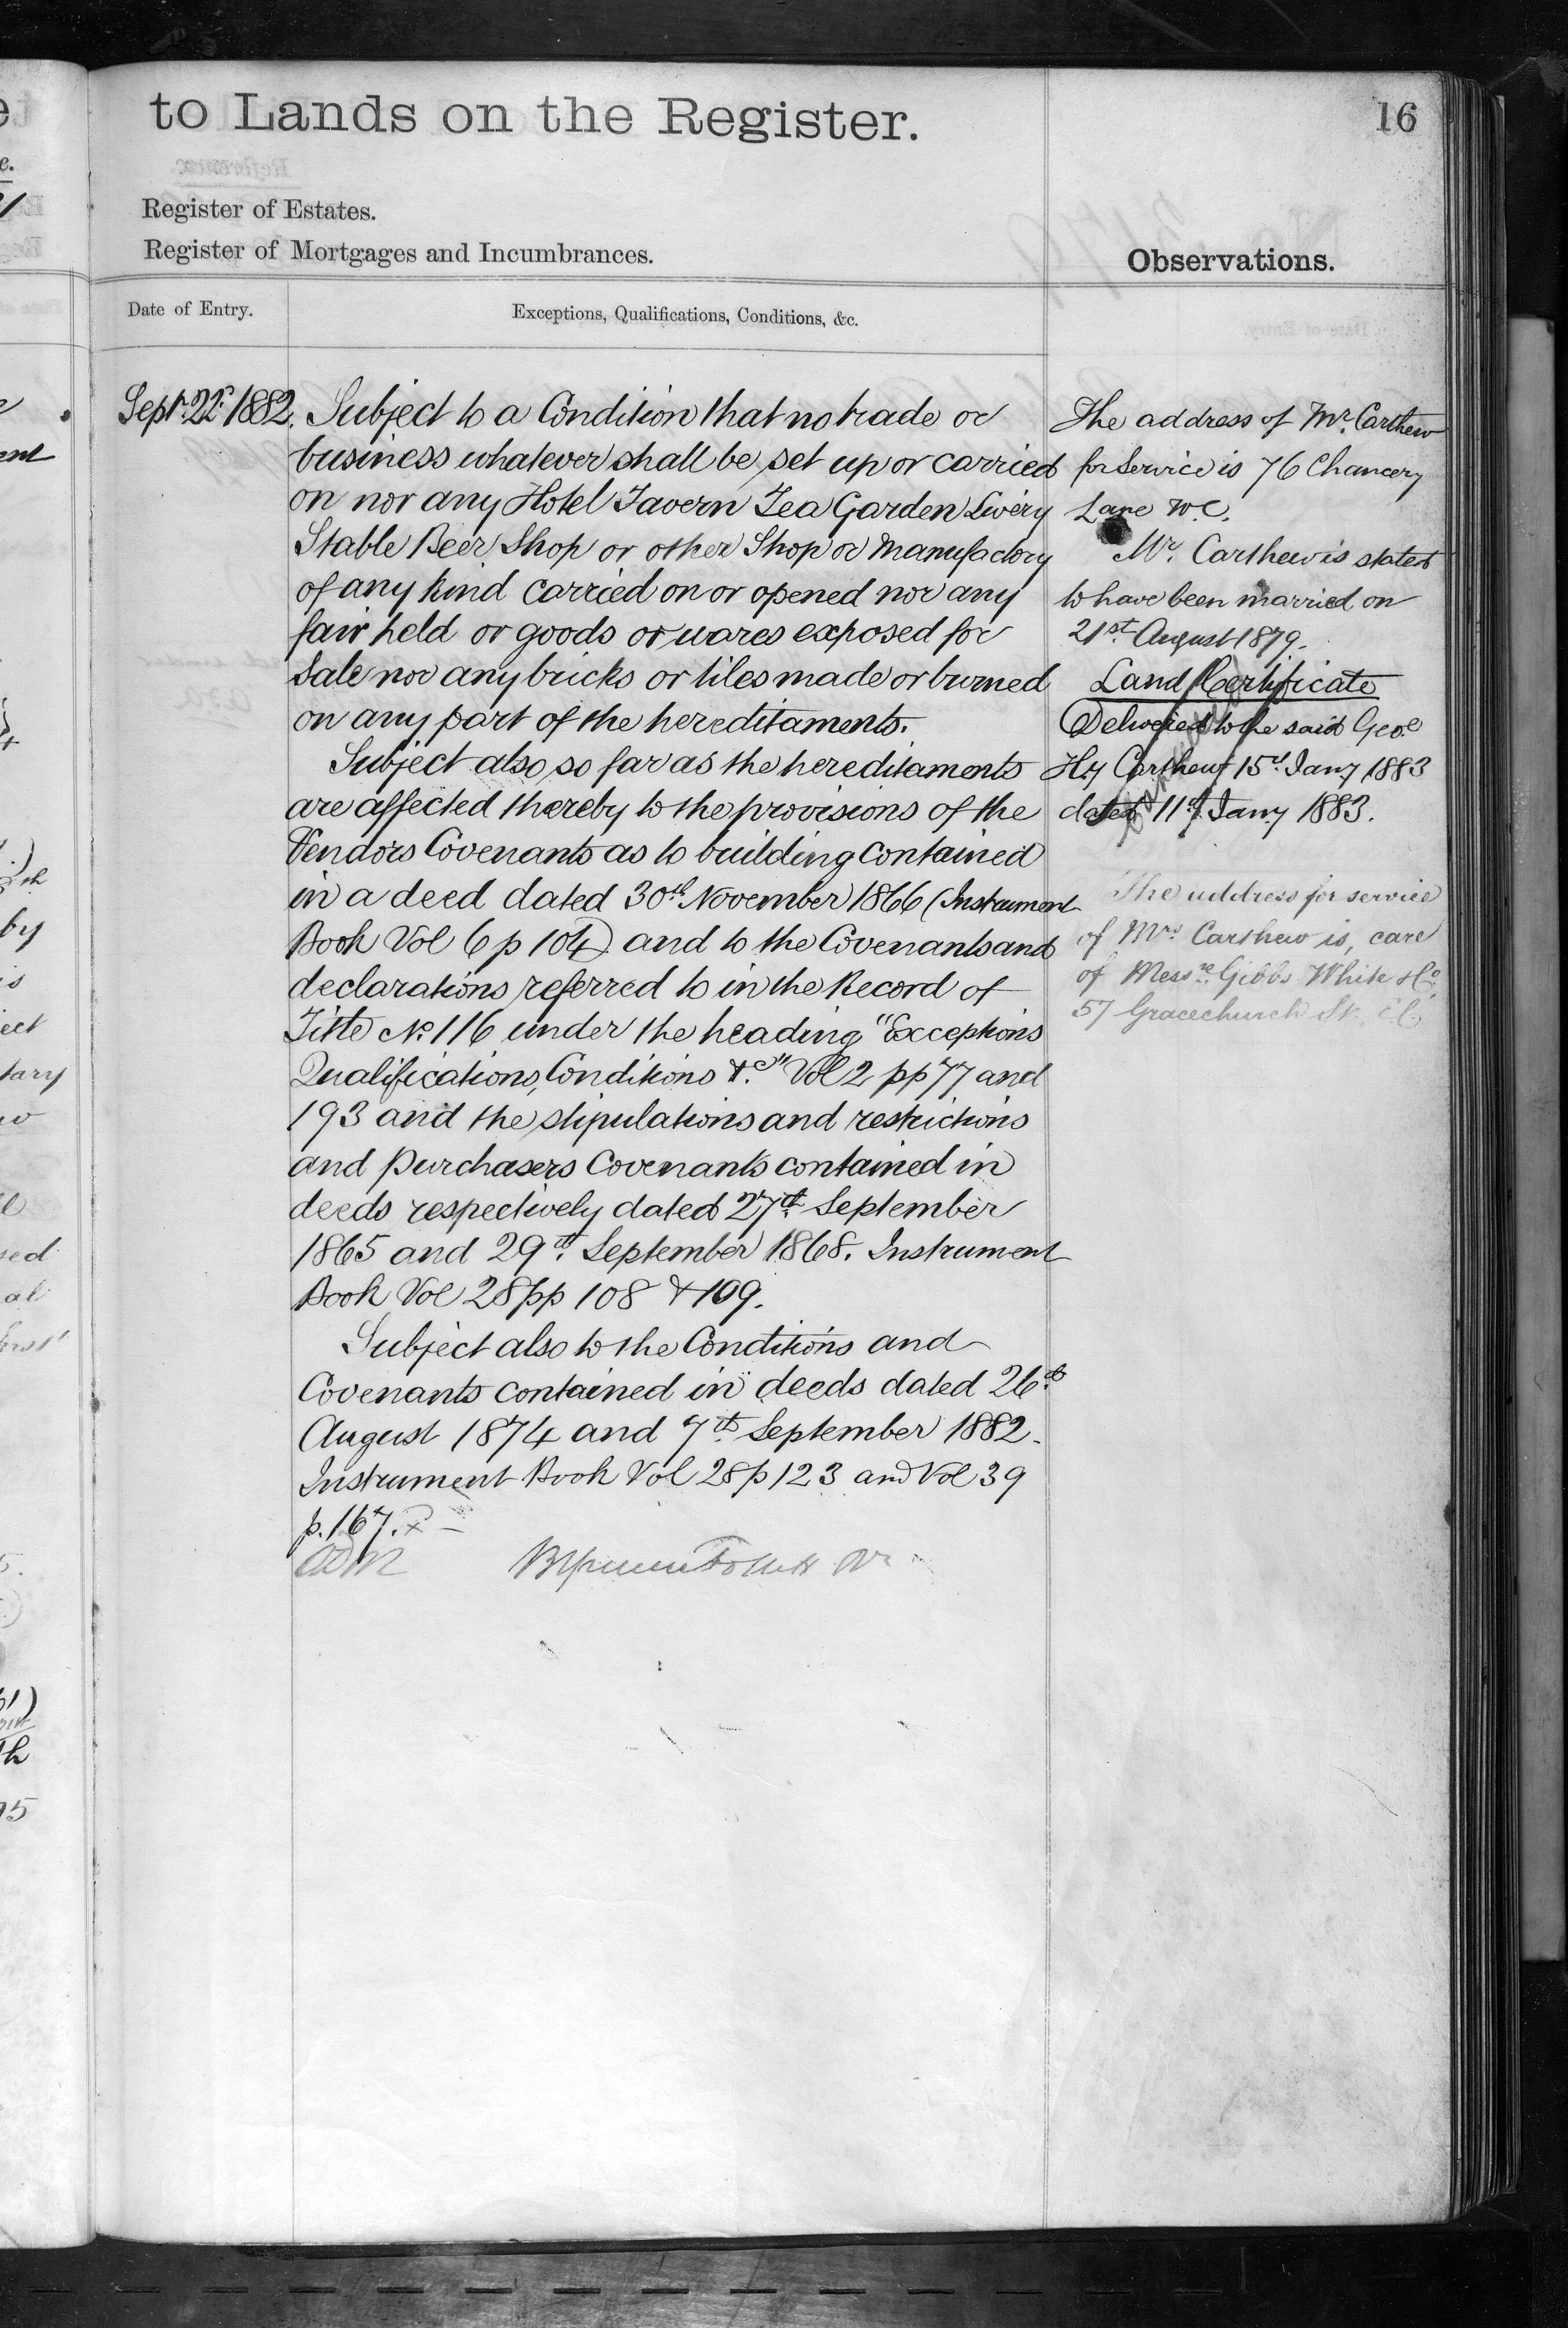 to Lands on the Register.
16
Register of Estates.
Register of Mortgages and Incumbrances.
Observations.
Date of Entry.
Exceptions, Qualifications, Conditions, &c.
Sept. 22. 1882.
Subject to a Condition that no trade or
business whatever shall be set up or carried
on nor any Hotel Tavern Tea Garden Livery
Stable Beer Shop or other Shop or Manufactory
of any kind carried on or opened nor any
fair held or goods or wares exposed for
Sale nor any bricks or tiles made or burned
on any part of the hereditaments.
Subject also so far as the hereditaments
are affected thereby to the provisions of the
Vendors Covenants as to building contained
in a deed dated 30th November 1866 (Instrument
Book Vol 6 p 104) and to the Covenants and
declarations referred to in the Record of
Title No. 116 under the heading "Exceptions
Qualifications, Conditions &c" Vol 2 pp 77 and
193 and the stipulations and restrictions
and Purchasers Covenants contained in
deeds respectively dated 27th September
1865 and 29th September 1868. Instrument
Book Vol 28 pp 108 & 109.
Subject also to the Conditions and
Covenants contained in deeds dated 26th
August 1874 and 7th September 1882.
Instrument Book Vol 28 p 123 and Vol 39
p. 167.
The address of Mr. Carthew
for Service is 76 Chancery
Lane W.C.
Mr. Carthew is stated
to have been married on
21st August 1879.
Land Certificate
Delivered to the said Geoe
Hy Carthew 15th Jany 1883
dated 11th Jany 1883.
The address for service
of Mrs Carthew is, care
of Messrs. Gibbs White & Co
57 Gracechurch St. E C